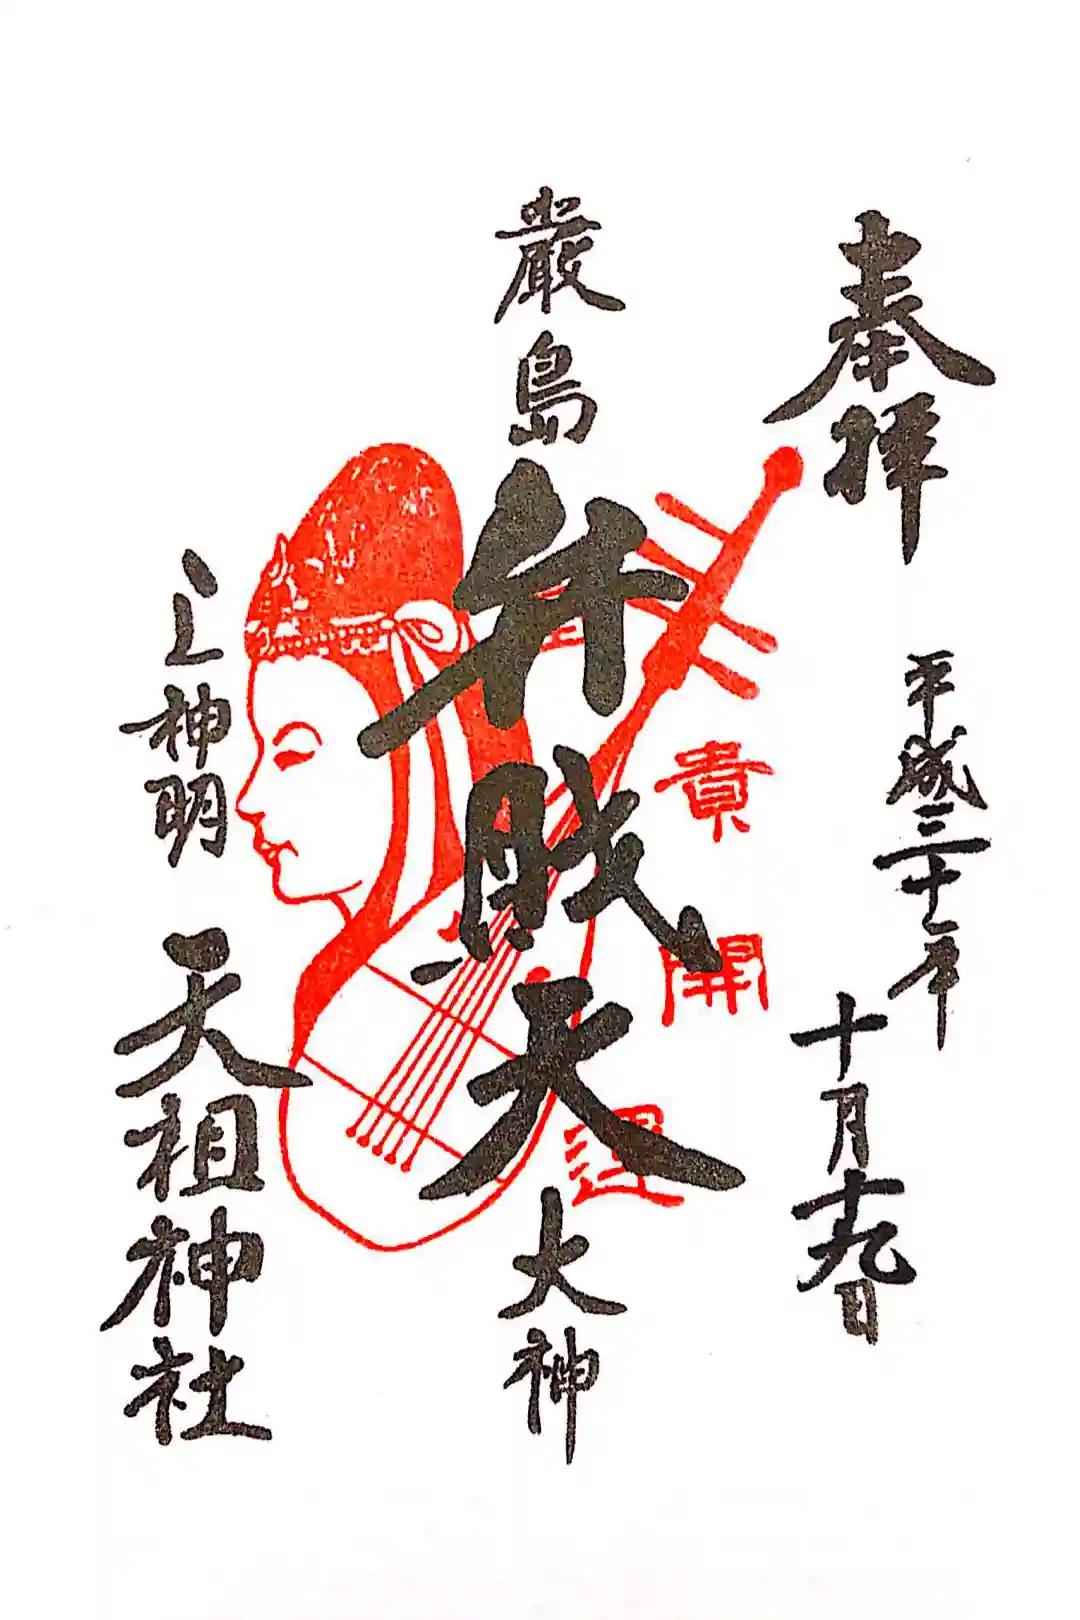 奉拝
平成三十年
十月十九日
厳島
弁戝天
大神
上神明
天祖神社
貴開運